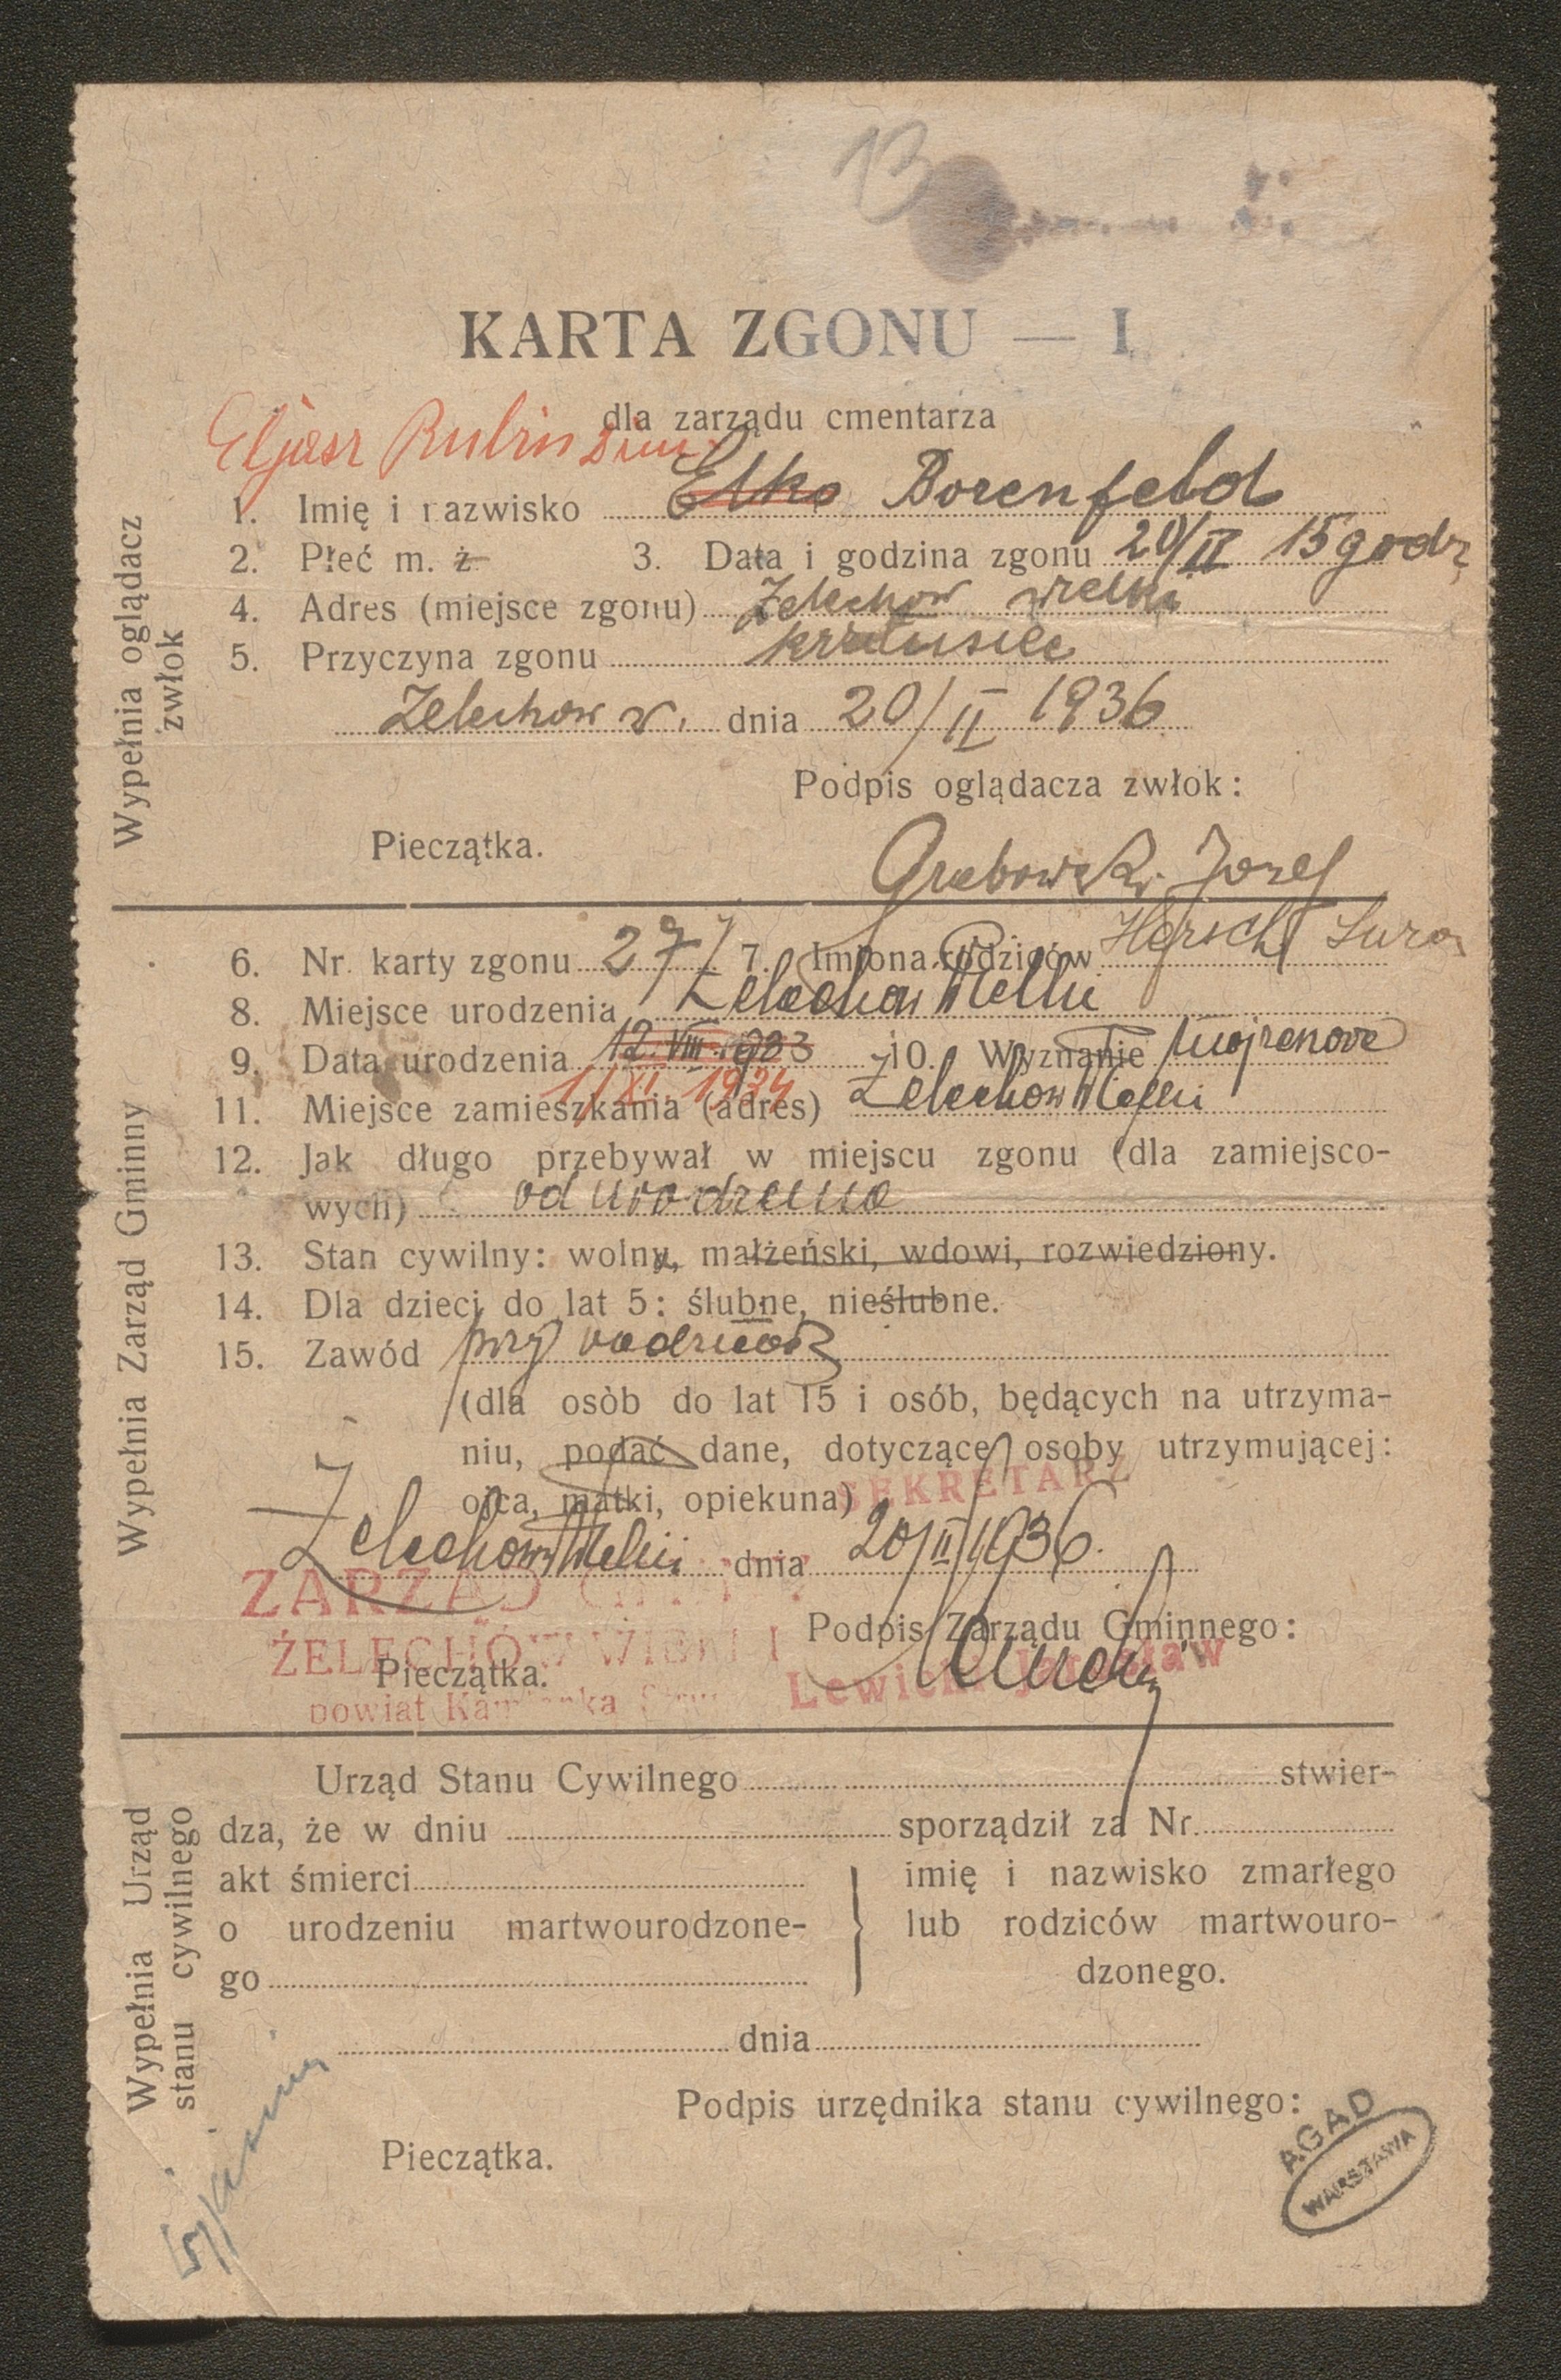 13
KARTA ZGONU — I
dla zarządu cmentarza
Eljasz Rubin
1. Imię i nazwisko Elko Borenfeld
2. Płeć m. ż 3. Data i godzina zgonu 20/II 15 godz
4. Adres (miejsce zgonu) Zelechow wielki
5. Przyczyna zgonu krztusiec
Zelechow w. dnia 20/II 1936
Podpis oglądacza zwłok:
Pieczątka.
Grabowski Jozef
Wypełnia oglądacz
zwłok
6. Nr. karty zgonu 27/ 7. Imiona rodziców Hersch Sura
8. Miejsce urodzenia Żelechów Wielki
9. Data urodzenia 12. VIII. 1933 10. Wyznanie mojżeszowe
1/XI. 1934
11. Miejsce zamieszkania (adres) Żelechów Wielki
12. Jak długo przebywał w miejscu zgonu (dla zamiejsco-
wych) od urodzenia
13. Stan cywilny: wolny, małżeński, wdowi, rozwiedziony.
14. Dla dzieci do lat 5: ślubne, nieślubne.
15. Zawód przy rodzicach
(dla osòb do lat 15 i osób, będących na utrzyma-
niu, podać dane, dotyczące osoby utrzymującej:
ojca, matki, opiekuna)
SEKRETARZ
Żelechów Wielki dnia 20/II 1936.
ZARZĄD GMINY
ŻELECHÓW WIELKI
Podpis Zarządu Gminnego:
Pieczątka.
Lewicki Jarosław
powiat Kamionka
Wypełnia Zarząd Gminny
Urząd Stanu Cywilnego stwier-
dza, że w dniu sporządził za Nr.
akt śmierci imię i nazwisko zmarłego
o urodzeniu martwourodzone- lub rodziców martwouro-
go dzonego.
dnia
Podpis urzędnika stanu cywilnego:
Pieczątka.
Wypełnia Urząd
stanu cywilnego
AGAD
WARSZAWA